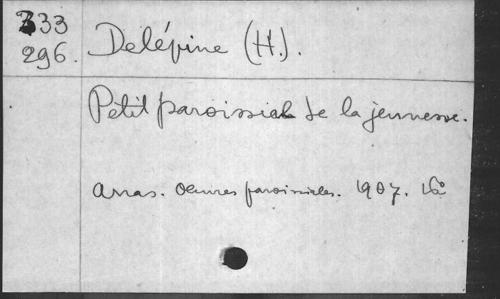 333
Delépine (H.).
296.
Petit paroissial de la jeunesse.
Arras. Oeuvres paroissiales. 1907. 16º